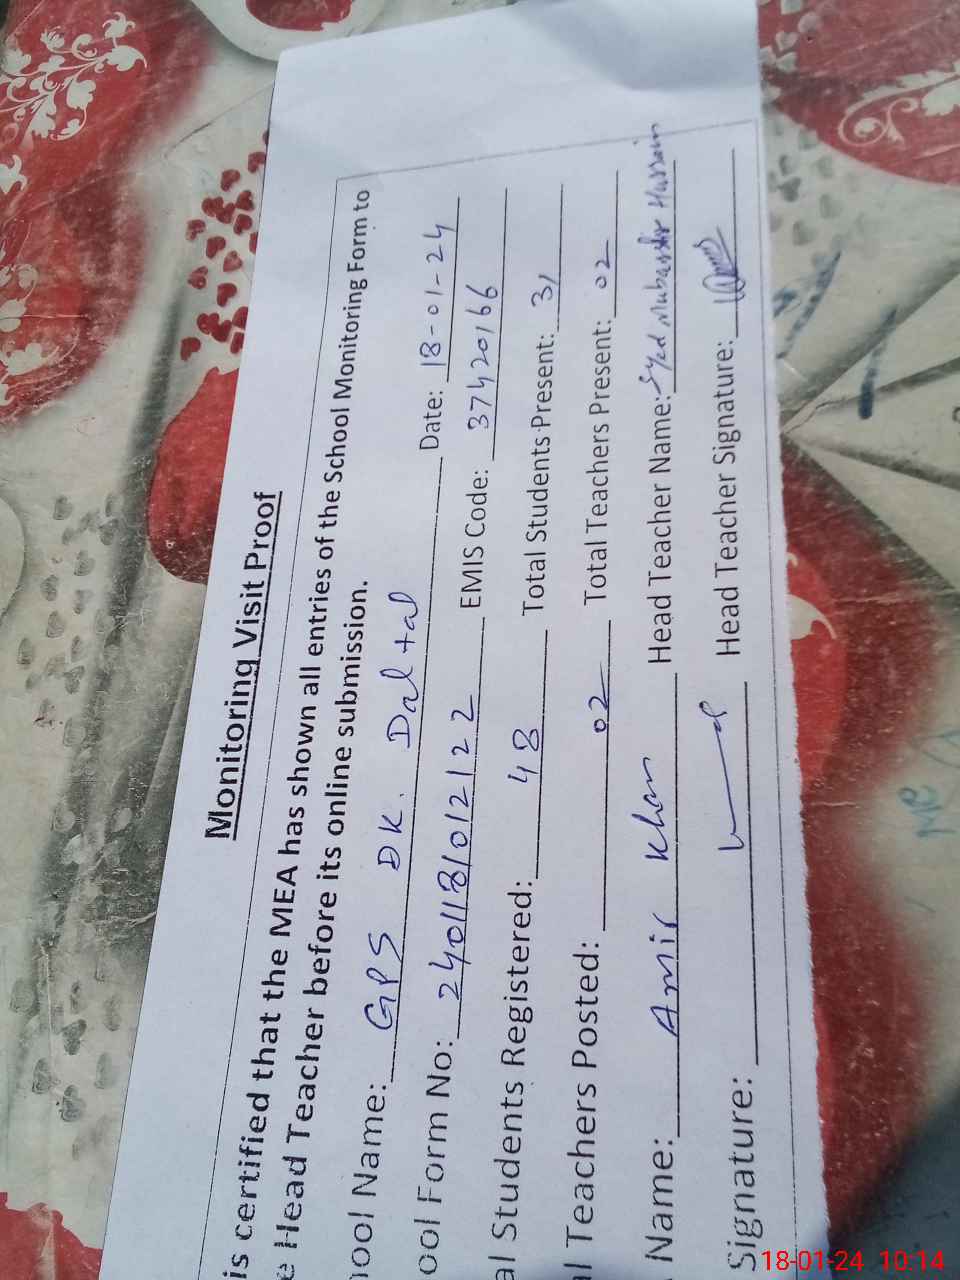 Monitoring Visit Proof
is certified that the MEA has shown all entries of the School Monitoring Form to
e Head Teacher before its online submission.
hool Name: GPS DK. Daltal Date: 18-01-24
ool Form No: 240118/012122 EMIS Code: 37420166
al Students Registered: 48 Total Students Present: 31
al Teachers Posted: 02 Total Teachers Present: 02
Name: Amir Khan Head Teacher Name: Syed Mubasshr Hussain
Signature: Head Teacher Signature:
18-01-24 10:14